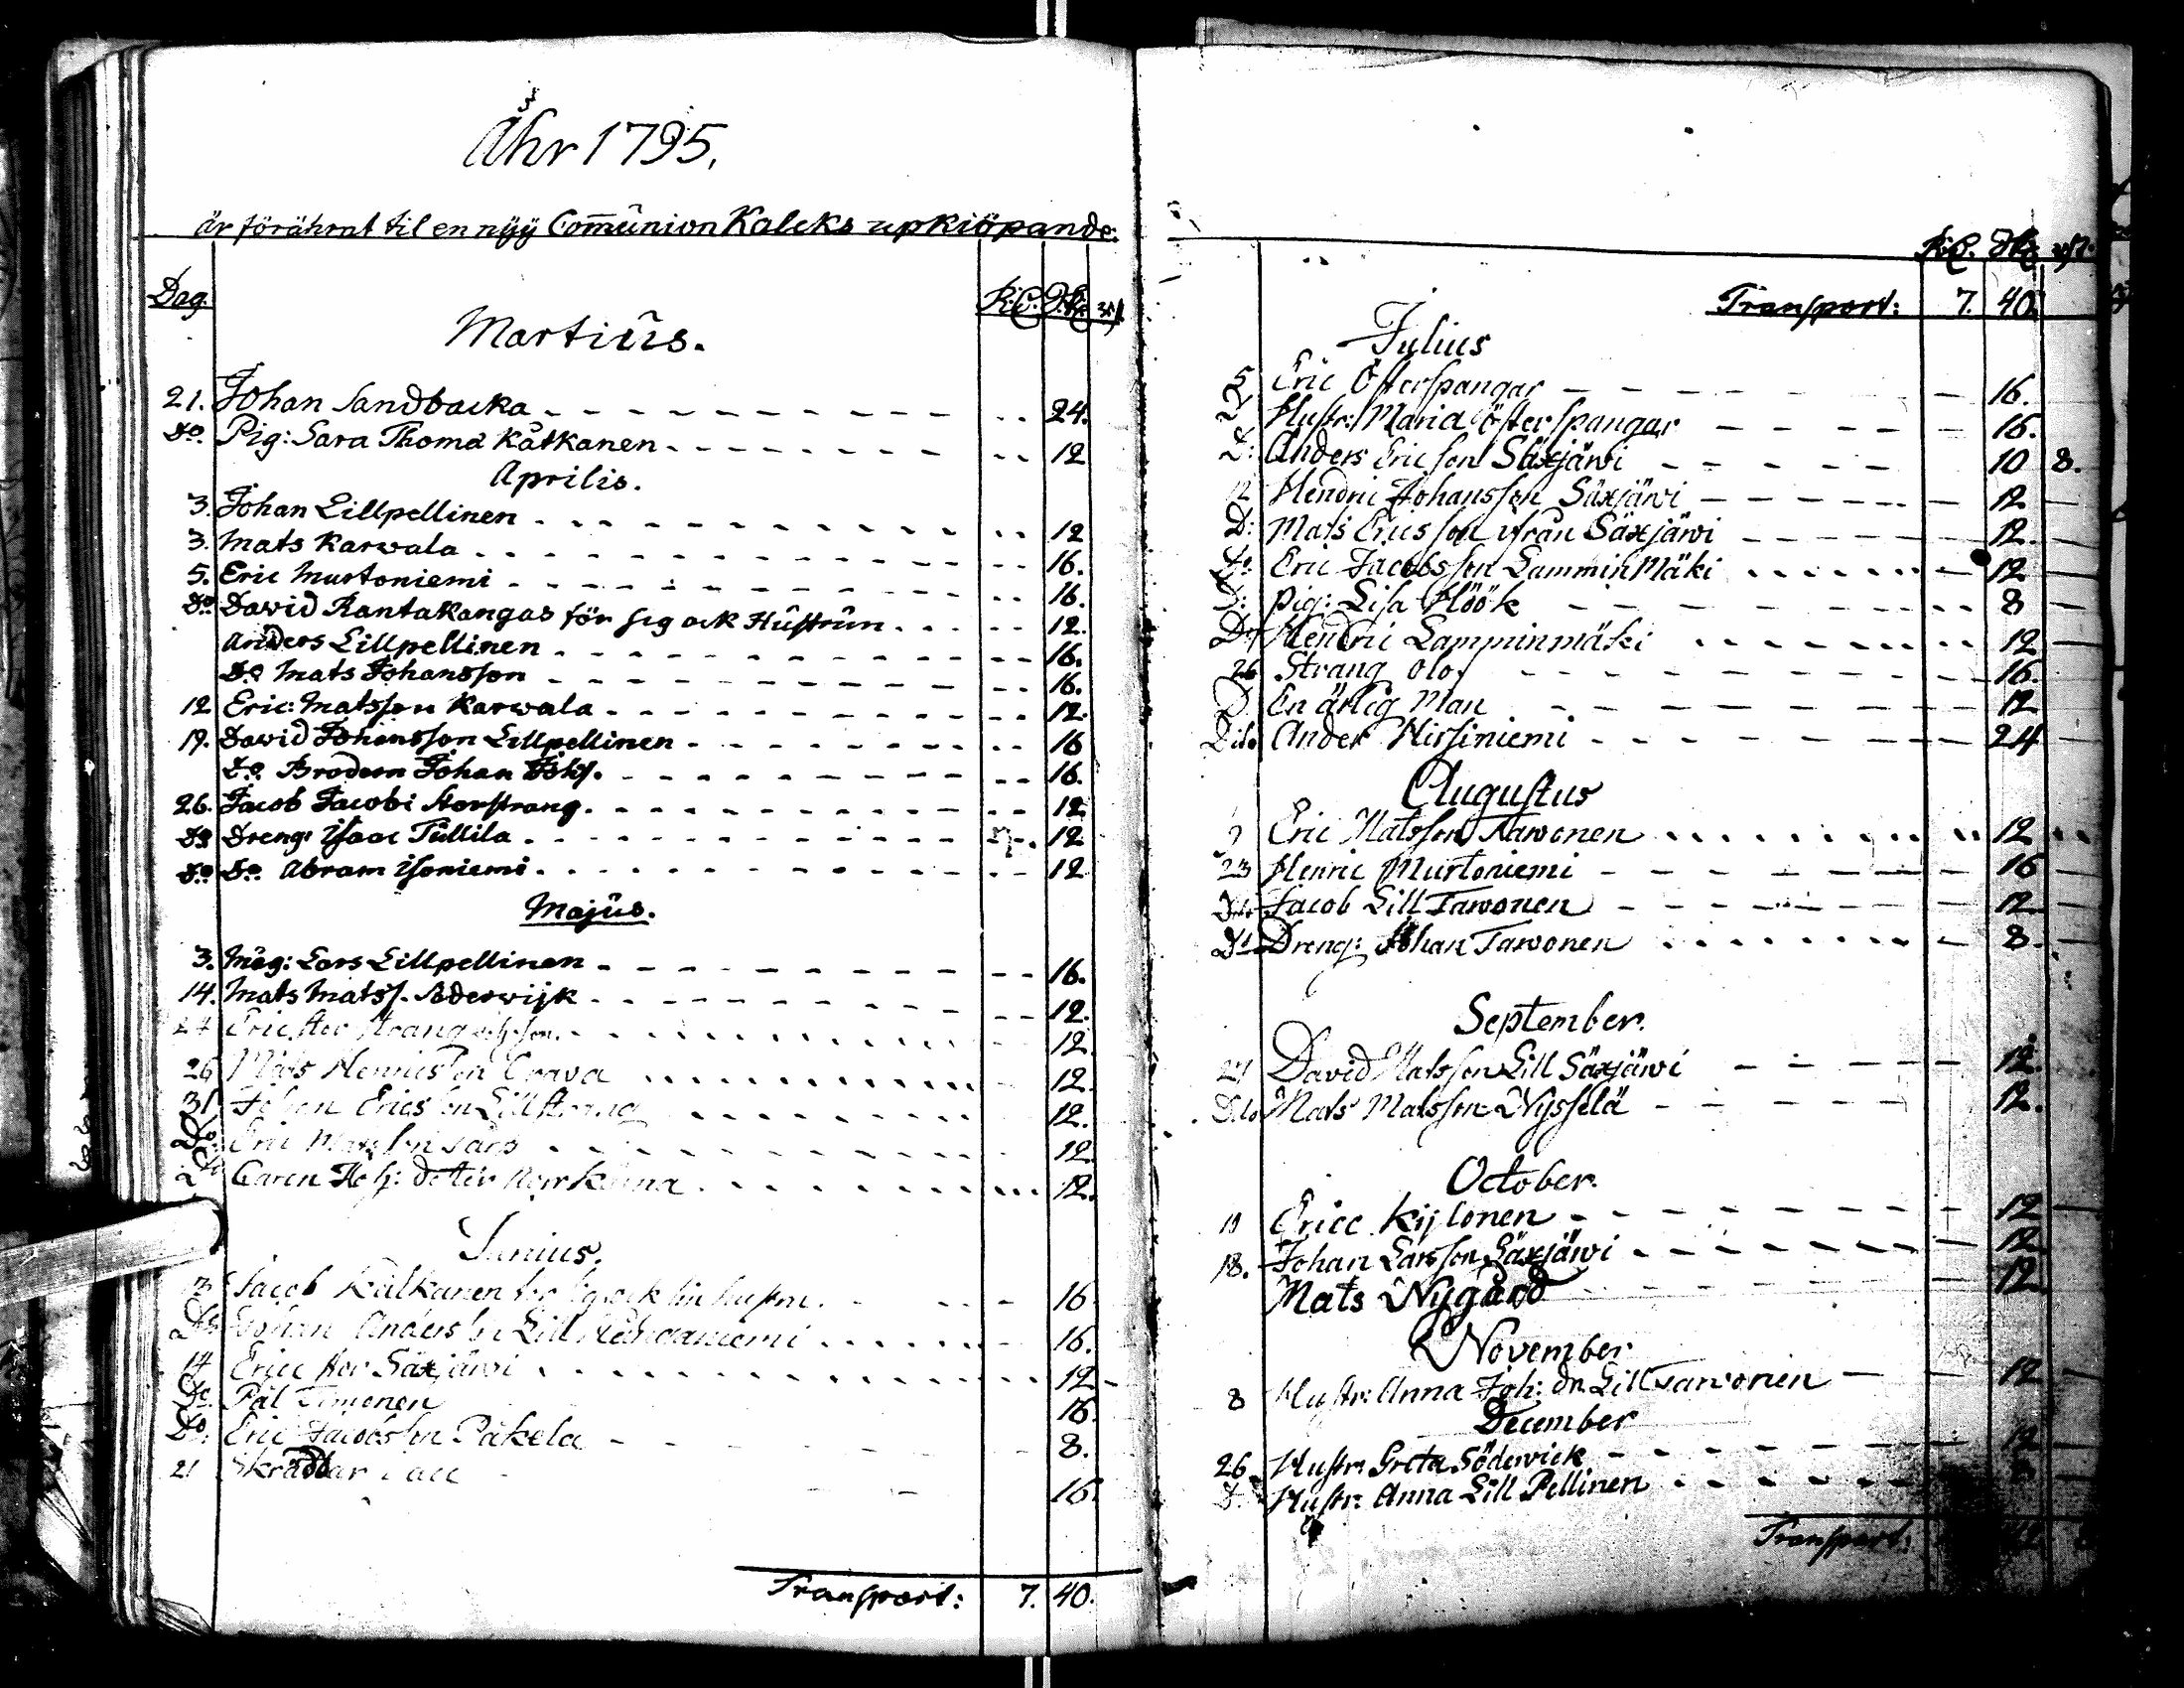 Åhr 1795.
är förährat til en nyy Comunion Kalcks upkiöpande:
Dag. R:d. sk. rst.
Martius.
21. Johan Sandbacka 24.
Do. Pig: Sara Thoma Kätkanen 12
Aprilis.
3. Johan Lillpellinen 12
3. Mats Karwala 16.
5. Eric Murtoniemi 16.
Do. David Rantakangas för sig ock Hustrun 12.
Anders Lillpellinen 16.
Do Mats Johansson 16.
12 Eric: Matsson Karwala 12.
19. David Johansson Lillpellinen 16
Do. Brodern Johan Johs. 16.
26. Jacob Jacobi Storstrang 12
Do Dreng: Isaac Tullila 12
Do Do. Abram Isoniemi 12
Majus.
3. Måg: Lars Lillpellinen 16.
14. Mats Matss. Söderwijk 12.
24 Eric Stor Strang 12.
26 Mats Henricsson 12.
31 Johan Ericsson Lillstrang 12.
Do. Eric 12.
Do Caren Joh: doter 12.
Junius.
3 Jacob Kätkanen för sig ock sin hustru 16.
Do Johan Andersson Lill 16.
14 Erice Stor Säxjärvi 12
Do. Pål Timonen 16.
Do. Eric Jacobsson Påkela 8.
21 Skräddar 16.
Transport: 7. 40.
R:d. sk. rst.
Transport: 7. 40.
Julius
5 Eric Österspangar 16.
D: Hustr: Maria Österspangar 16.
D: Anders Ericsson Säxjärvi 10 8.
12 Hendric Johansson Säxjärvi 12
D: Mats Ericsson ifrån Säxjärvi 12.
Do. Eric Jacobsson Lammin Mäki 12
D: Pig: Lisa Höök 8
D: Hendric Lamminmäki 12
26 Strang Olof 16.
D. En ärlig Man 12
Dito Ander Hirsiniemi 24
Augustus
Eric Matsson Tavonen 12
23 Henric Murtoniemi 16
Do. Jacob Lill Tavonen 12
Do Dreng: Johan Tavonen 8.
September.
27 David Matsson Lill Säxjärvi 12.
Dito Mats Matsson Nysselä 12.
October.
11 Ericc Kijlonen 12
18. Johan Larsson Säxjärvi 12
Mats Nygård 12
November
8 Hustr: Anna Joh: dr. Lill Tavonen 12
December
26 Hustr: Greta Söderwick 12
D. Hustr: Anna Lill Pellinen 8
Transport: